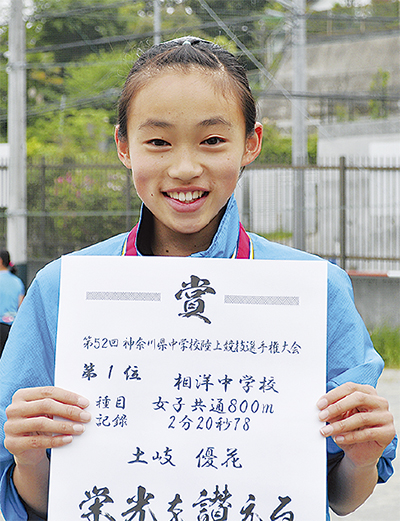 賞
第52回 神奈川県中学校陸上競技選手権大会
第1位 相洋中学校
種目 女子共通800m
記録 2分20秒78
土岐 優花
栄光を讃える